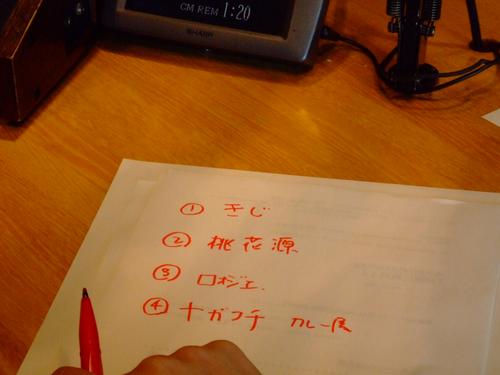 CM REM 1:20
SHARP
① きじ
② 桃花源
③ ロジエ.
④ ナガフチ カレー展